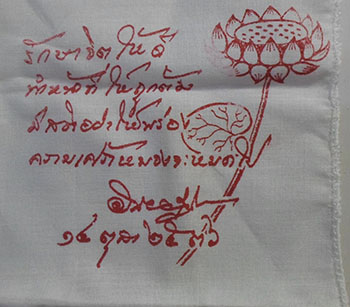 รักษาจิตให้ดี
ทำหน้าที่ให้ถูกต้อง
มีสติอย่าให้พร่อง
ความเศร้าหมองจะหมดไป
๑๔ ตุลา ๒๕๓๖